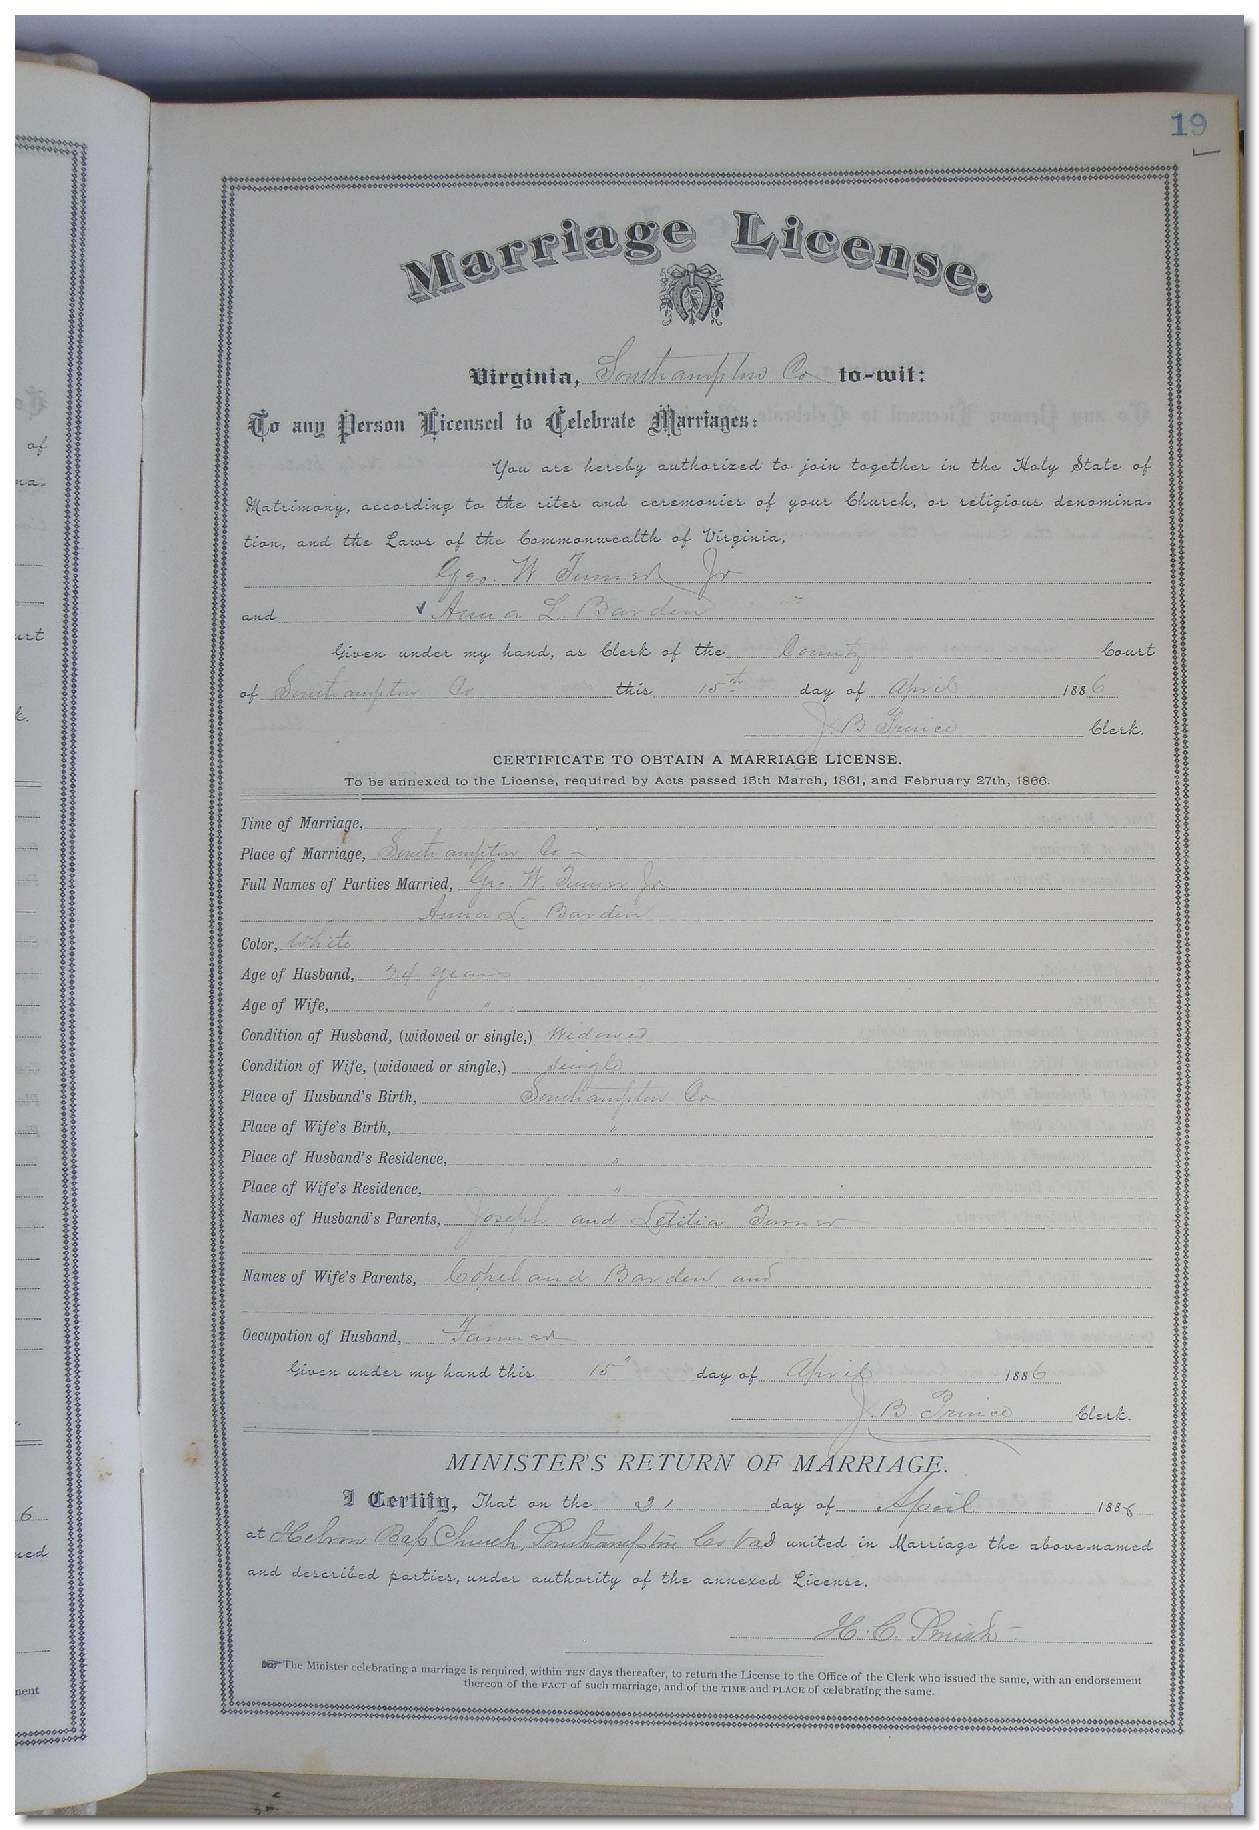 19
Marriage License.
Virginia, Southampton Co to-wit:
To any Person Licensed to Celebrate Marriages:
You are hereby authorized to join together in the Holy State of
Matrimony, according to the rites and ceremonies of your Church, or religious denomina-
tion, and the Laws of the Commonwealth of Virginia,
Geo. W Turner Jr
and Anna L. Barden
Given under my hand, as Clerk of the County Court
of Southampton Co this 15th day of April 1886
J. B Prince Clerk.
CERTIFICATE TO OBTAIN A MARRIAGE LICENSE.
To be annexed to the License, required by Acts passed 15th March, 1861, and February 27th, 1866.
Time of Marriage,
Place of Marriage, Southampton Co
Full Names of Parties Married, Geo. W. Turner Jr
Anna L. Barden
Color, White
Age of Husband, 34 years
Age of Wife, "
Condition of Husband, (widowed or single,) Widowed
Condition of Wife, (widowed or single,) Single
Place of Husband's Birth, Southampton Co
Place of Wife's Birth, "
Place of Husband's Residence, "
Place of Wife's Residence, "
Names of Husband's Parents, Joseph and Letitia Turner
Names of Wife's Parents, Copeland Barden and
Occupation of Husband, Farmer
Given under my hand this 15" day of April 1886
J. B. Prince Clerk.
MINISTER'S RETURN OF MARRIAGE.
I Certify, That on the 21 day of April 1886
at Hebron Bap Church, Southampton Co Va I united in Marriage the above-named
and described parties, under authority of the annexed License.
H. C.
The Minister celebrating a marriage is required, within TEN days thereafter, to return the License to the Office of the Clerk who issued the same, with an endorsement
thereon of the FACT of such marriage, and of the TIME and PLACE of celebrating the same.